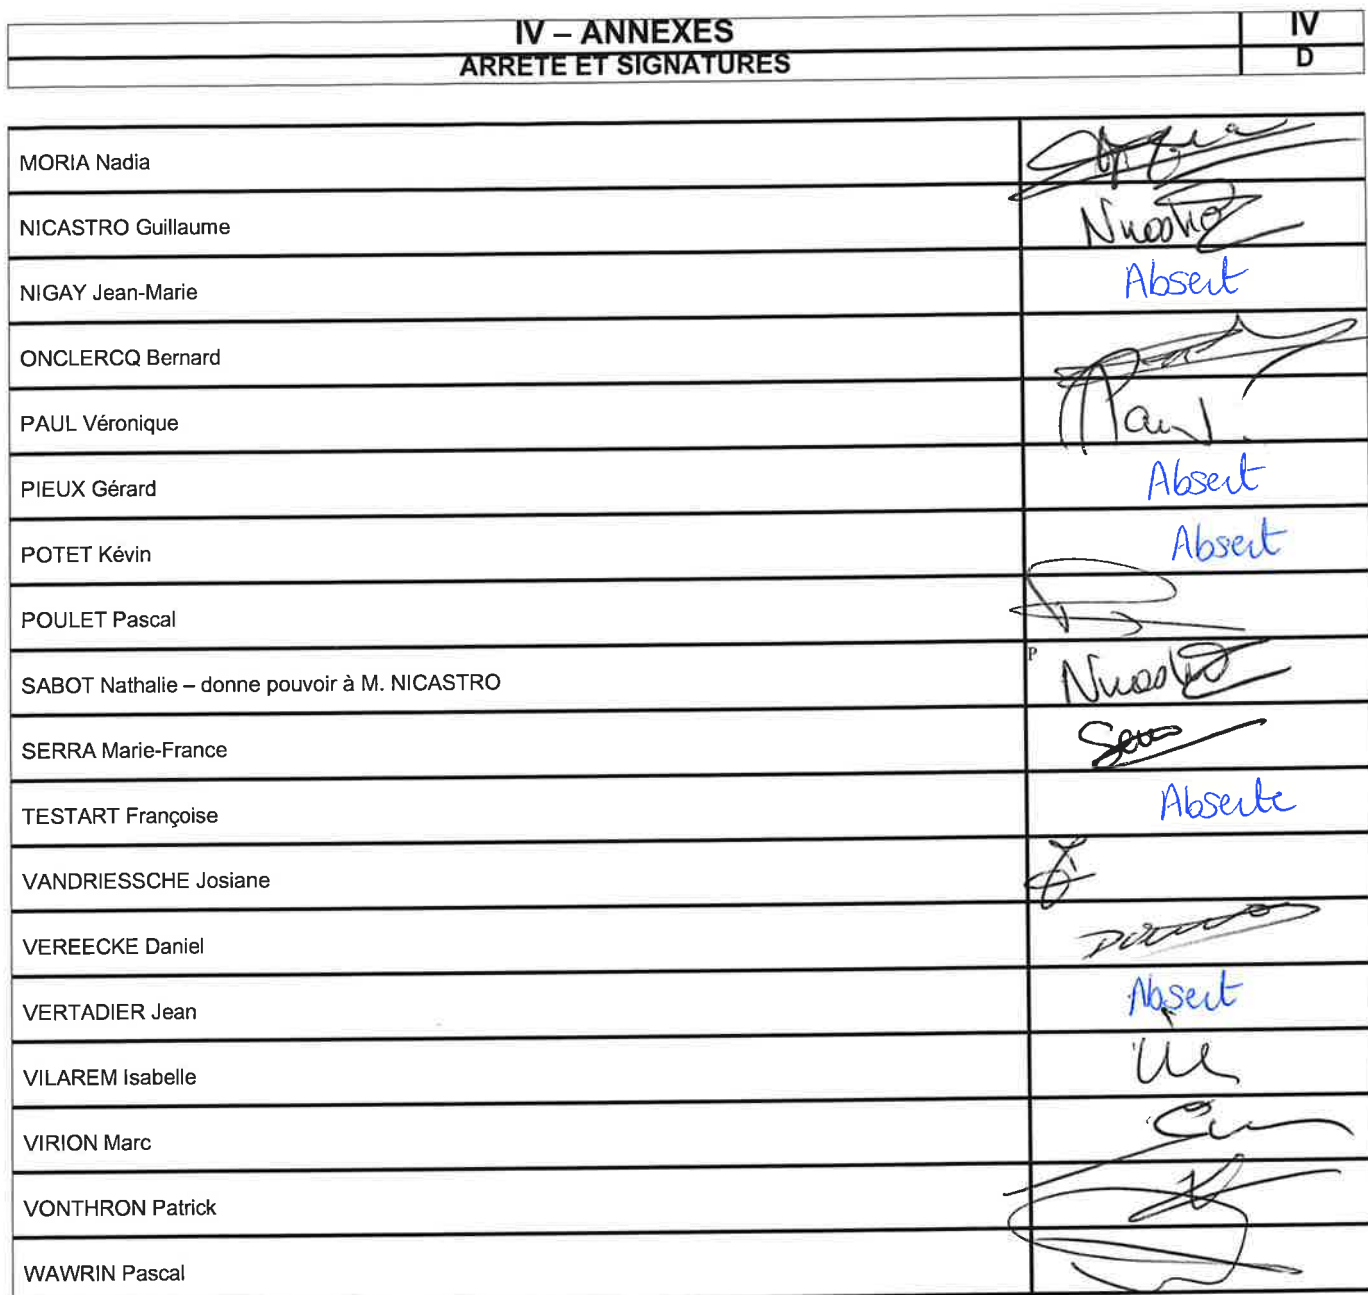 IV – ANNEXES
IV
ARRETE ET SIGNATURES
D
MORIA Nadia
NICASTRO Guillaume
Nicastro
NIGAY Jean-Marie
Absent
ONCLERCQ Bernard
PAUL Véronique
Paul
PIEUX Gérard
Absent
POTET Kévin
Absent
POULET Pascal
SABOT Nathalie – donne pouvoir à M. NICASTRO
P
Nicastro
SERRA Marie-France
Serra
TESTART Françoise
Absente
VANDRIESSCHE Josiane
VEREECKE Daniel
VERTADIER Jean
Absent
VILAREM Isabelle
VIRION Marc
VONTHRON Patrick
WAWRIN Pascal